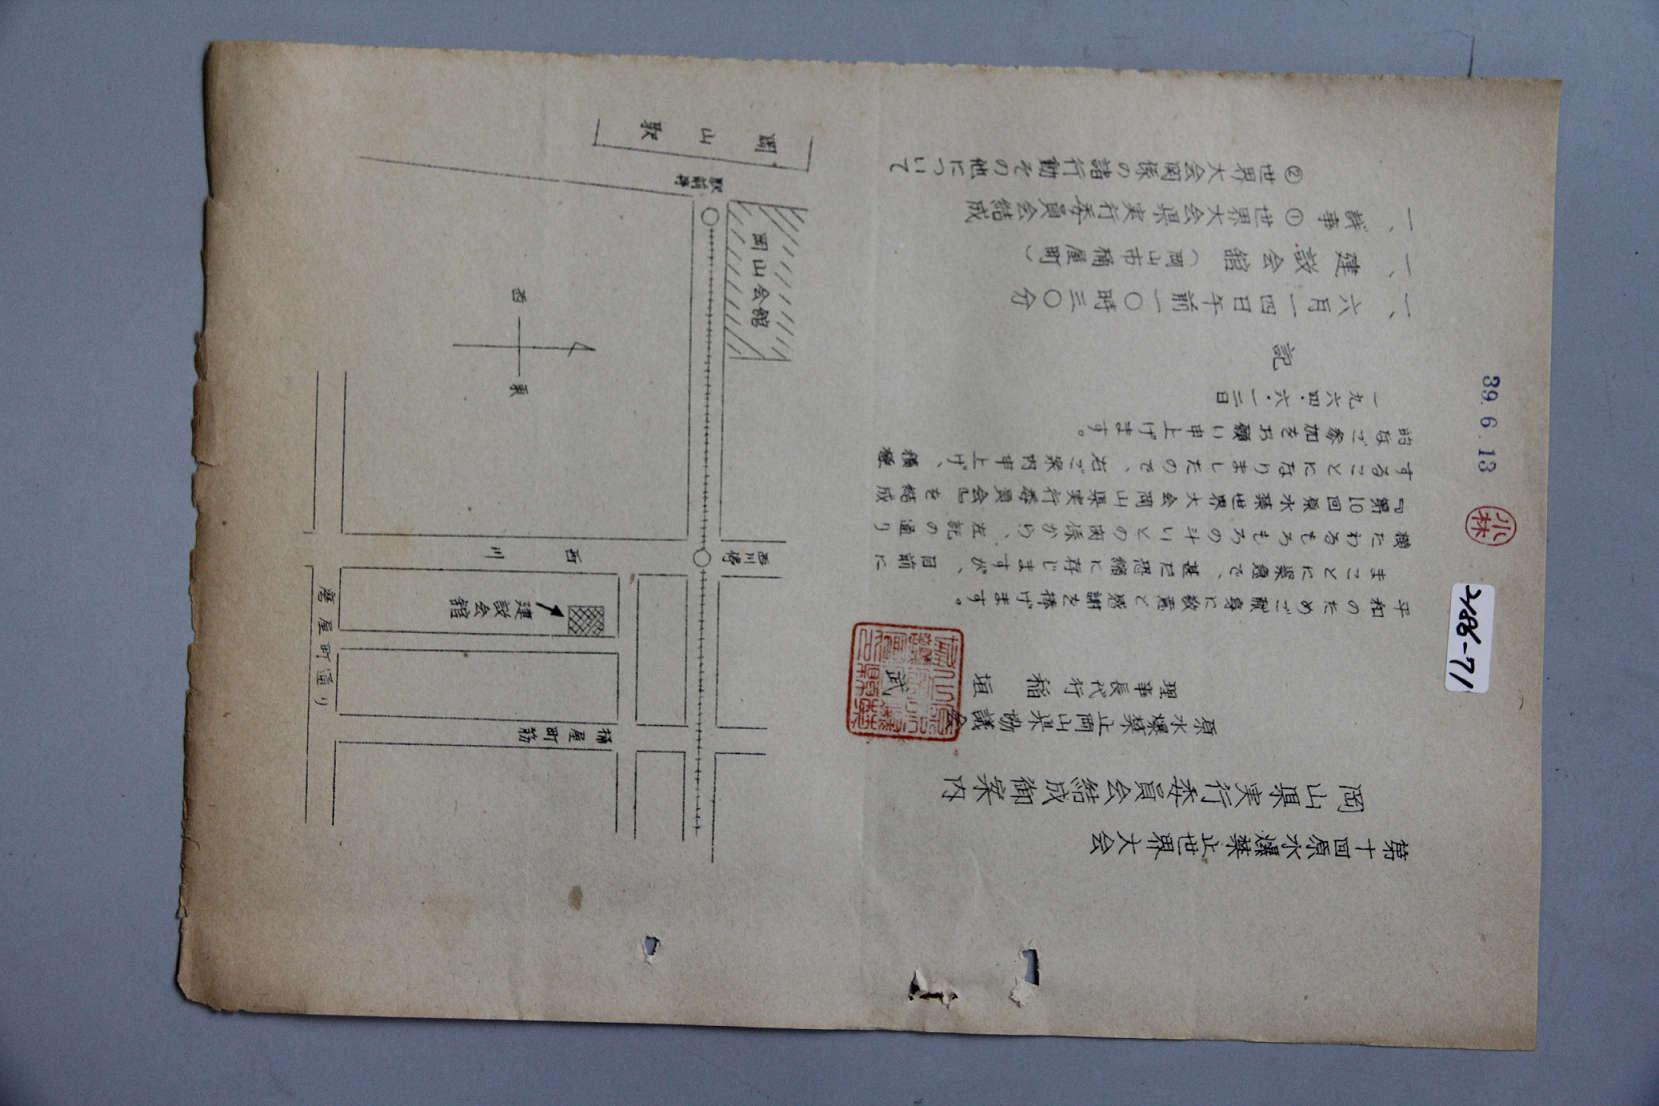 第十回原水爆禁止世界大会
岡山県実行委員会結成御案内
原水爆禁止岡山県協議会
理事長代行 稲垣 武
平和のためご献身に敬意と感謝を捧げます。
まことに果急で、甚だ恐縮に存じますが、目前に
横たわるもろもろの斗いとの関係から、左記の通り
『第10回原水禁世界大会岡山県実行委員会』を結成
することになりましたので、右ご案内申上げ、積極
的なご参加をお願い申上げます。
一九六四・六・一二日
記
一、六月一四日午前一〇時三〇分
一、建設会館(岡山市桶屋町)
一、議事 ①世界大会県実行委員会結成
②世界大会関係の諸行動その他について
39.6.13
小林
岡山駅
駅前
岡山会館
西
東
西川
建設会館
磨屋町通り
桶屋町筋